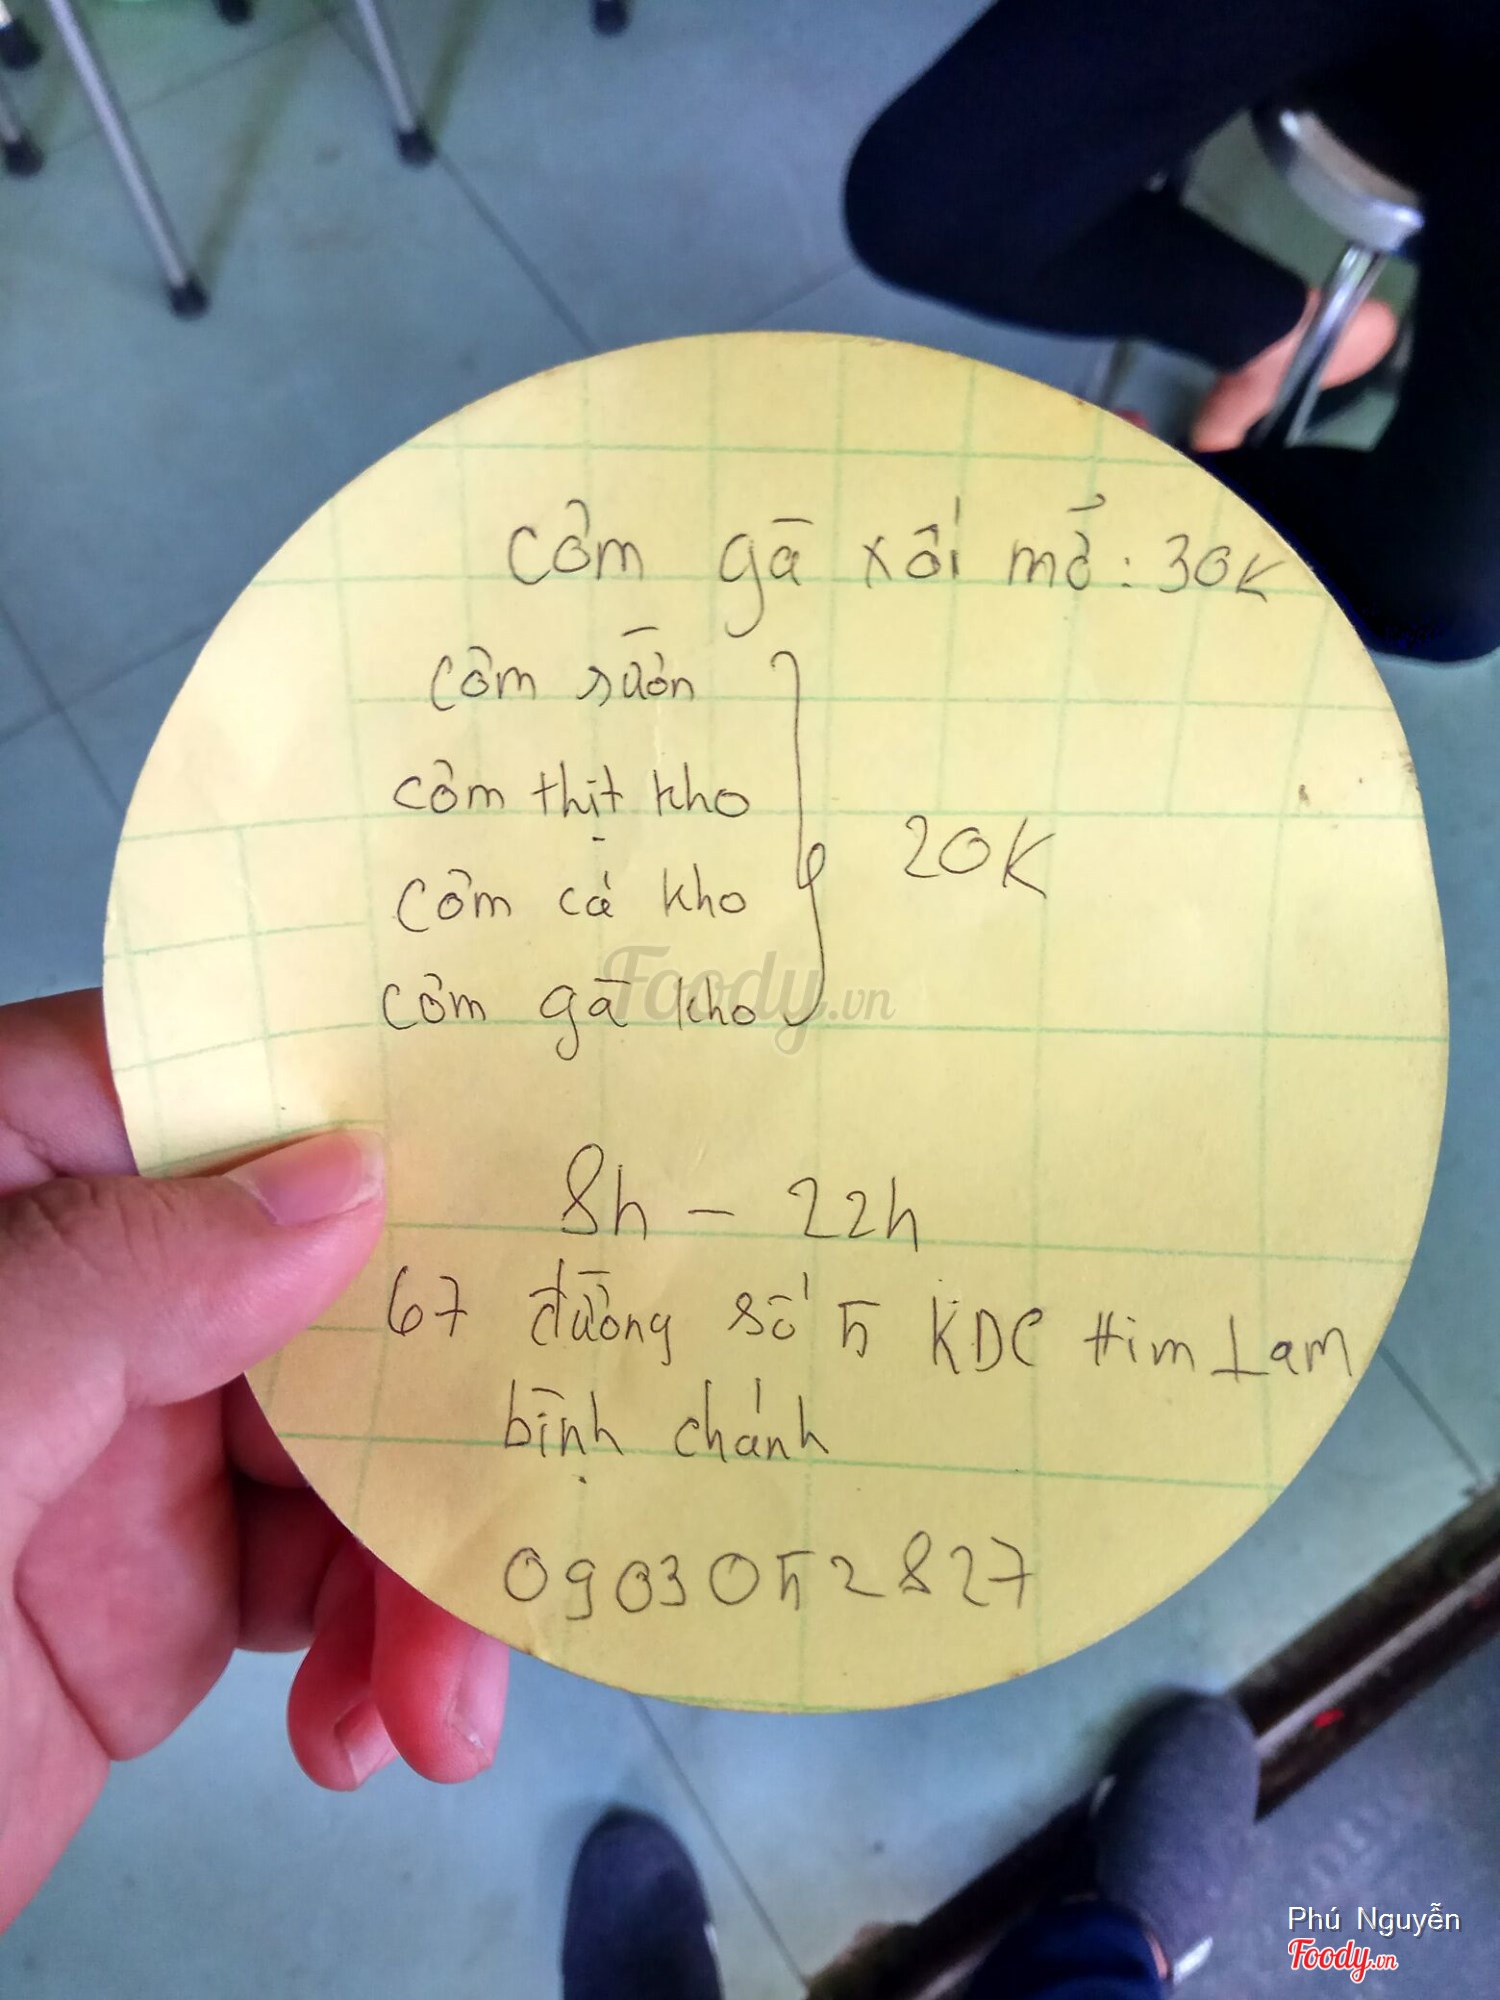 Cơm gà xối mỡ: 30K
Cơm sườn
Cơm thịt kho
Cơm cá kho
Cơm gà kho
20K
8h - 22h
67 đường số 5 KDC Him Lam
bình chánh
0903052827
Foody.vn
Phú Nguyễn
Foody.vn